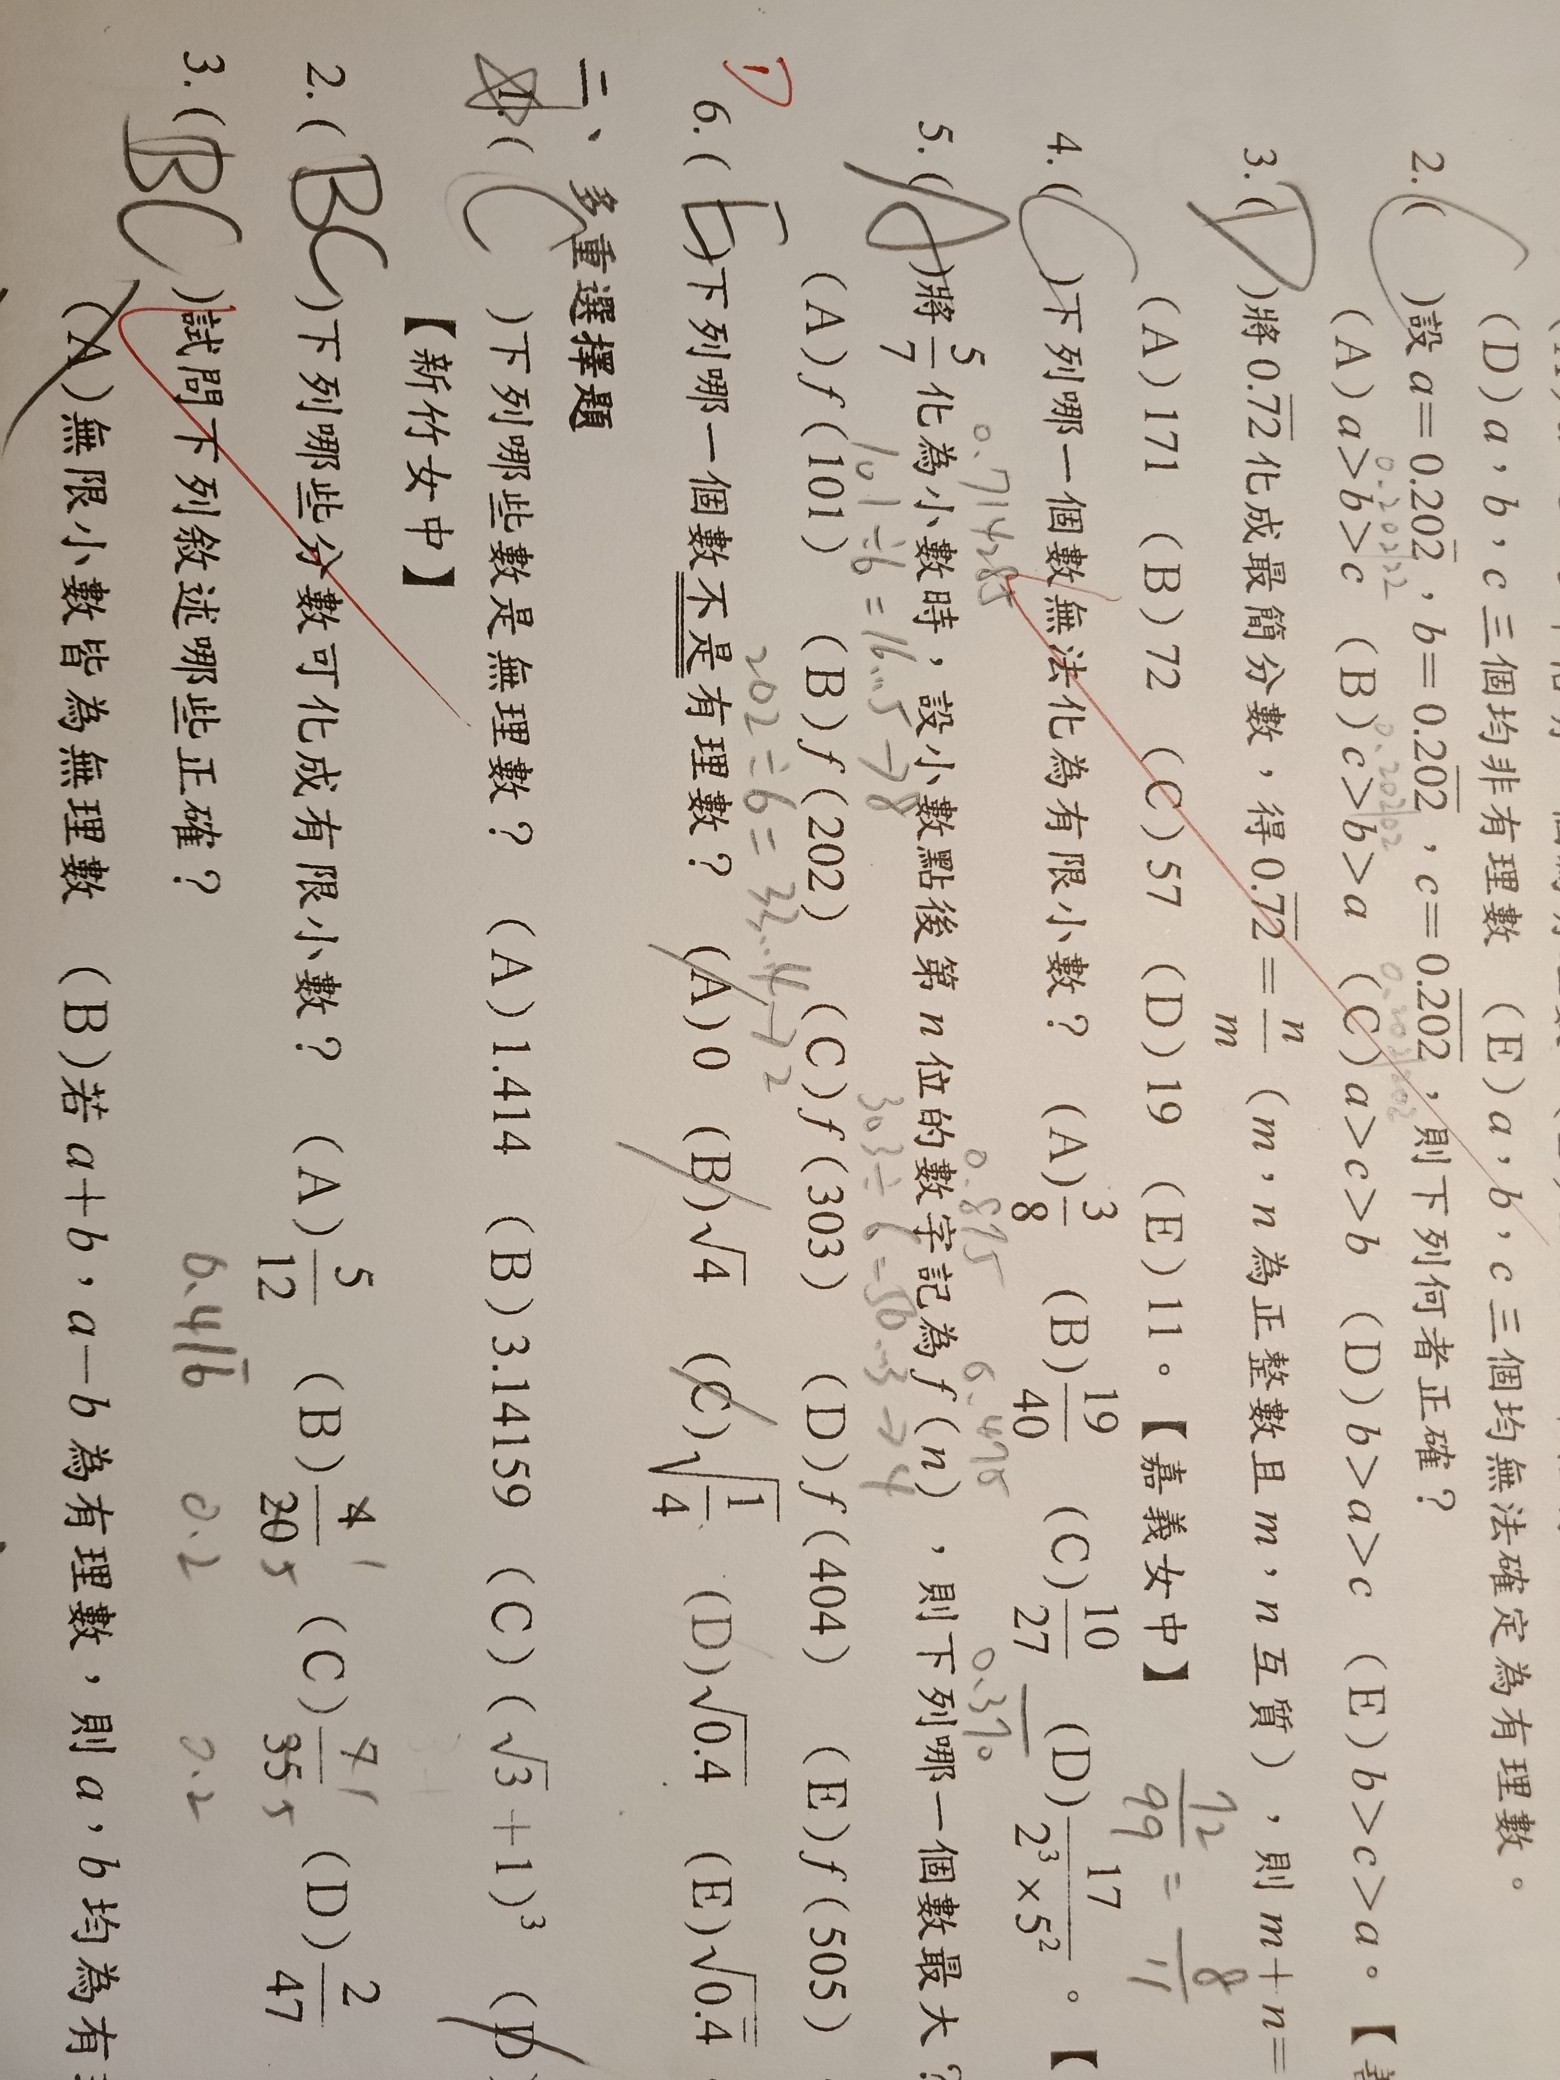 (D) a，b，c 三個均非有理數 (E) a，b，c 三個均無法確定為有理數。
2.( C )設 a＝0.20\overline{2}，b＝0.2\overline{02}，c＝0.\overline{202}，則下列何者正確？
0.202|22 0.202|02 0.202|202
(A) a＞b＞c (B) c＞b＞a (C) a＞c＞b (D) b＞a＞c (E) b＞c＞a。【
3.( D )將 0.\overline{72} 化成最簡分數，得 0.\overline{72}＝n/m（m，n 為正整數且 m，n 互質），則 m＋n＝
72/99 = 8/11
(A) 171 (B) 72 (C) 57 (D) 19 (E) 11。【嘉義女中】
4.( C )下列哪一個數無法化為有限小數？ (A) 3/8 (B) 19/40 (C) 10/27 (D) 17/(2³×5²)。【
0.714285 0.875 0.475 0.370
5.( A )將 5/7 化為小數時，設小數點後第 n 位的數字記為 f(n)，則下列哪一個數最大？
101÷6=16...5→8 303÷6=50...3→4
(A) f(101) (B) f(202) (C) f(303) (D) f(404) (E) f(505)
202÷6=33...4→2
6.( E )下列哪一個數不是有理數？ (A) 0 (B) √4 (C) √(1/4) (D) √0.4 (E) √0.\overline{4}
二、多重選擇題
1.( C )下列哪些數是無理數？ (A) 1.414 (B) 3.14159 (C) (√3＋1)³ (D)
【新竹女中】
2.( BC )下列哪些分數可化成有限小數？ (A) 5/12 (B) 4/20 (C) 7/35 (D) 2/47
1 5 1 5
0.41\overline{6} 0.2 0.2
3.( BC )試問下列敘述哪些正確？
(A) 無限小數皆為無理數 (B) 若 a＋b，a－b 為有理數，則 a，b 均為有